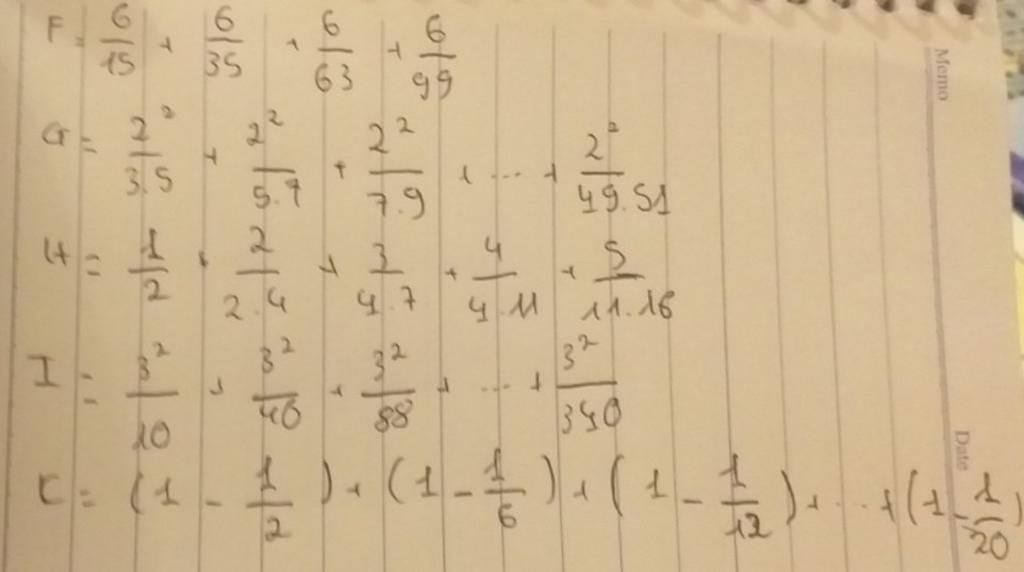 F = 6/15 + 6/35 + 6/63 + 6/99
G = 2²/3.5 + 2²/5.7 + 2²/7.9 + ... + 2²/49.51
H = 1/2 + 2/2.4 + 3/4.7 + 4/4.11 + 5/11.16
I = 3²/10 + 3²/40 + 3²/88 + ... + 3²/340
K = (1 - 1/2) + (1 - 1/6) + (1 - 1/12) + ... + (1 - 1/20)
Memo
Date